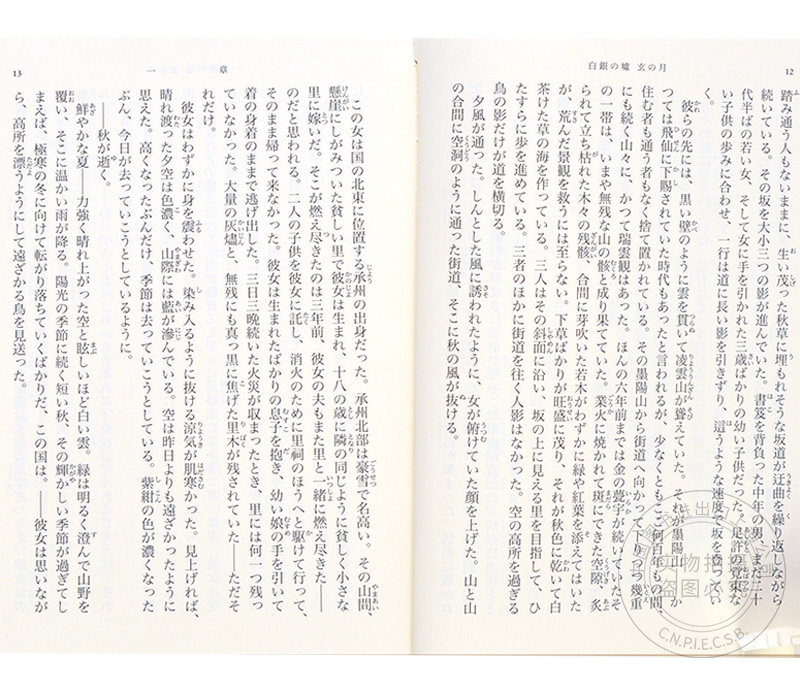 12
白銀の墟 玄の月
踏み通う人もないままに、生い茂った秋草に埋もれそうな坂道が迂曲を繰り返しながら
続いている。その坂を大小三つの影が進んでいた。書笈を背負った中年の男、まだ二十
代半ばの若い女、そして女に手を引かれた三歳ばかりの幼い子供だった。足許の覚束な
い子供の歩みに合わせ、一行は道に長い影を引きずり、這うような速度で坂を登ってい
く。
彼らの先には、黒い壁のように雲を貫いて凌雲山が聳えていた。それが墨陽山
つては飛仙に下賜されていた時代もあったと言われるが、少なくともここ何百年もの間、
住む者も通う者もなく捨て置かれている。その墨陽山から街道へ向かって下りつつ幾重
にも続く山々に、かつて瑞雲観はあった。ほんの六年前までは金の甍宇が続いていたそ
の一帯は、いまや無残な山の骸と成り果てていた。業火に焼かれて斑にできた空隙、炙
られて立ち枯れた木々の残骸、合間に芽吹いた若木がわずかに緑や紅葉を添えてはいた
が、荒んだ景観を救うには至らない。下草ばかりが旺盛に茂り、それが秋色に乾いて白
茶けた草の海を作っている。三人はその斜面に沿い、坂の上に見える里を目指して、ひ
たすらに歩を進めている。三者のほかに街道を往く人影はなかった。空の高所を過ぎる
鳥の影だけが道を横切る。
夕風が通った。しんとした風に誘われたように、女が俯けていた顔を上げた。山と山
の合間に空洞のように通った街道、そこに秋の風が抜ける。
一章
13
この女は国の北東に位置する承州の出身だった。承州北部は豪雪で名高い。その山間、
懸崖にしがみついた貧しい里で彼女は生まれ、十八の歳に隣の同じように貧しく小さな
里に嫁いだ。そこが燃え尽きたのは三年前、彼女の夫もまた里と一緒に燃え尽きた――
のだと思われる。二人の子供を彼女に託し、消火のために里祠のほうへと駆けて行って、
そのまま帰って来なかった。彼女は生まれたばかりの息子を抱き、幼い娘の手を引いて
着の身着のままで逃げ出した。三日三晩続いた火災が収まったとき、里には何一つ残っ
ていなかった。大量の灰燼と、無残にも真っ黒に焦げた里木が残されていた――ただそ
れだけ。
彼女はわずかに身を震わせた。染み入るように抜ける涼気が肌寒かった。見上げれば、
晴れ渡った夕空は色濃く、山際には藍が滲んでいる。空は昨日よりも遠ざかったように
思えた。高くなったぶんだけ、季節は去っていこうとしている。紫紺の色が濃くなった
ぶん、今日が去っていこうとしているように。
――秋が逝く。
鮮やかな夏――力強く晴れ上がった空と眩しいほど白い雲。緑は明るく澄んで山野を
覆い、そこに温かい雨が降る。陽光の季節に続く短い秋、その輝かしい季節が過ぎてし
まえば、極寒の冬に向けて転がり落ちていくばかりだ、この国は。――彼女は思いなが
ら、高所を漂うようにして遠ざかる鳥を見送った。
实物拍摄
盗图必究
C.N.P.I.E.C.S.B.